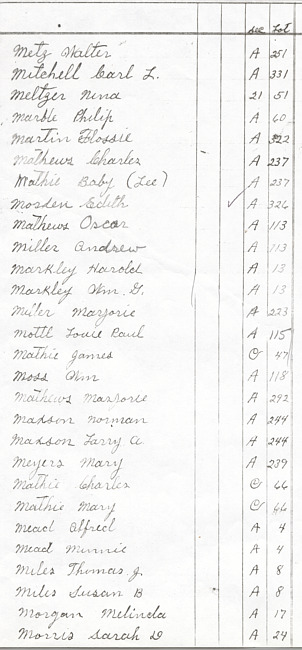 Sec Lot
Metz Walter A 251
Mitchell Carl L. A 331
Meltzer Nina 21 51
Marble Philip A 60
Martin Flossie A 322
Mathews Charles A 237
Mathie Baby (Lee) A 237
Mosden Edith ✓ A 326
Mathews Oscar A 113
Miller Andrew A 113
Markley Harold A 13
Markley Wm. G. A 13
Miller Marjorie A 223
Mottl Louie Paul A 115
Mathie James 47
Moss Wm A 118
Mathews Marjorie A 292
Madson Norman A 244
Madson Larry A. A 244
Meyers Mary A 239
Mathie Charles 66
Mathie Mary 66
Mead Alfred A 4
Mead Minnie A 4
Miles Thomas J. A 8
Miles Susan B A 8
Morgan Melinda A 17
Morris Sarah D A 24